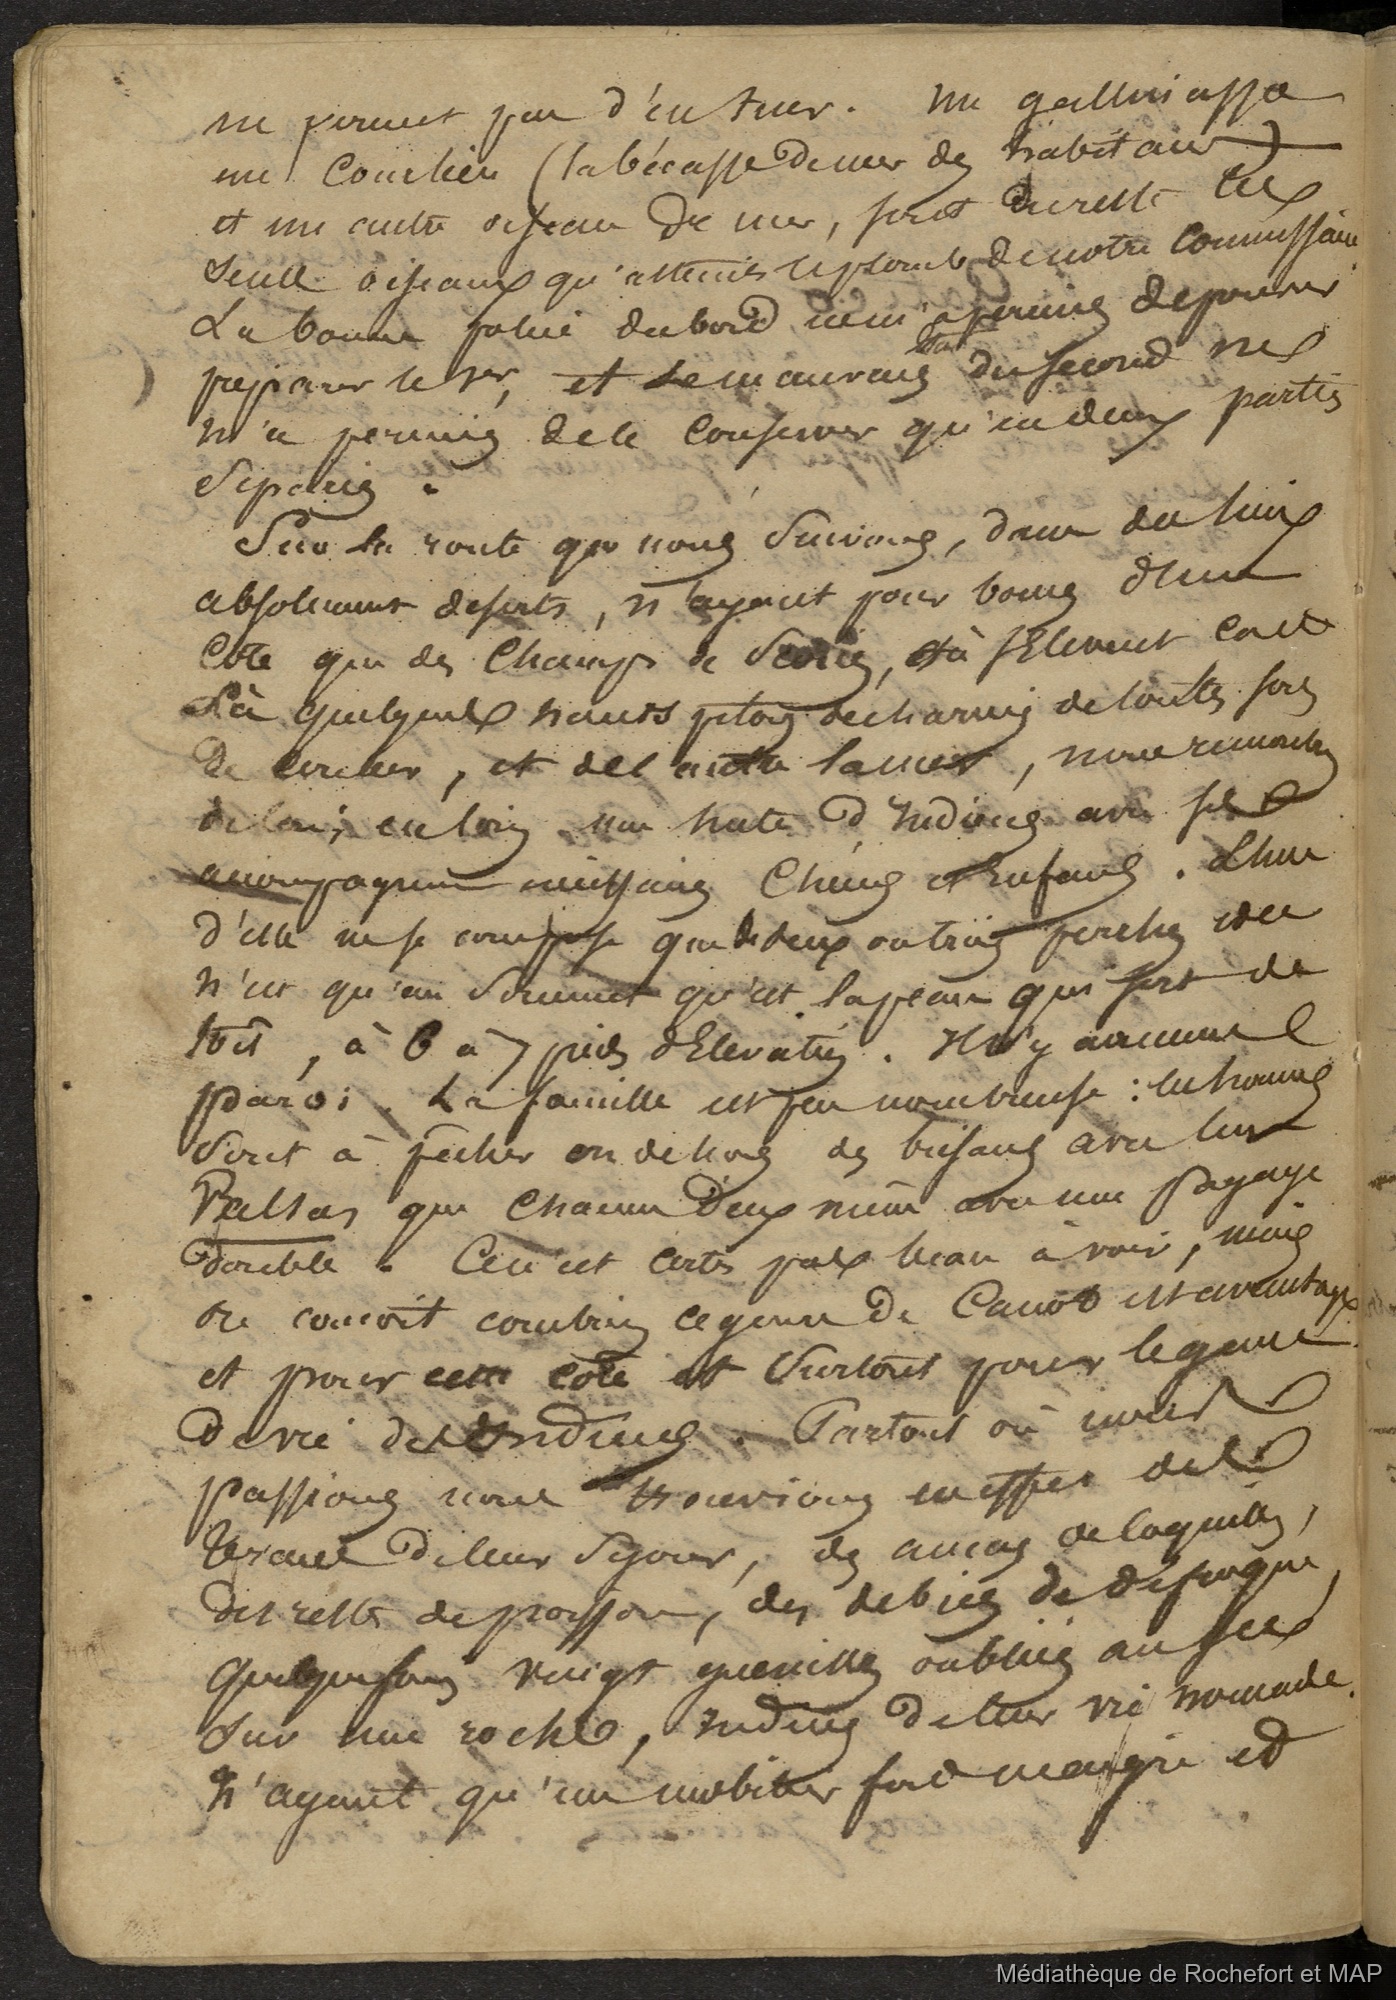 ne permet pas d'en tuer. Un gallinasse
un Courlieu (la bécasse de mer des habitans)
et un autre oiseau de mer, sont du reste les
seuls oiseaux qu'atteint le plomb de notre Commissaire
La bonne police du bord ne m'a permis de pouvoir
preparer le 1er, et le mauvais du second ne
m'a permis de le conserver qu'en deux parties
separées.
Sur la route que nous suivons, dans des lieux
absolument deserts, n'ayant pour bornes d'un
Côté que des Champs de Scories, où s'élèvent cà et
Là quelques hauts pitons decharnés de toutes sortes
de couleurs, et de l'autre la mer, nous rencontrons
de loin en loin une hutte d'Indiens avec ses
accompagnemens nécessaires Chiens et Enfans. L'une
d'elle ne se compose que de deux ou trois perches et ce
n'est qu'au sommet qu'est la peau qui sert de
toit, à 6 à 7 pieds d'Elevation. Il n'y a aucune
paroi. La famille est peu nombreuse : les hommes
sont à pêcher en dehors des brisans avec leurs
Balsas que chacun d'eux mène avec une pagaye
double. Ceci n'est certes pas beau à voir, mais
on conçoit combien ce genre de Canot est avantageux
et pour cette côte et surtout pour le genre
de vie des Indiens. Partout où nous
passions nous trouvions en effet des
traces de leur séjour, des amas de coquilles,
des restes de poisson, des debris de défroque,
quelquefois vingt guenilles oubliées au sec
sur une roche, Indiens de leur vie nomade.
N'ayant qu'un mobilier fort maigre et